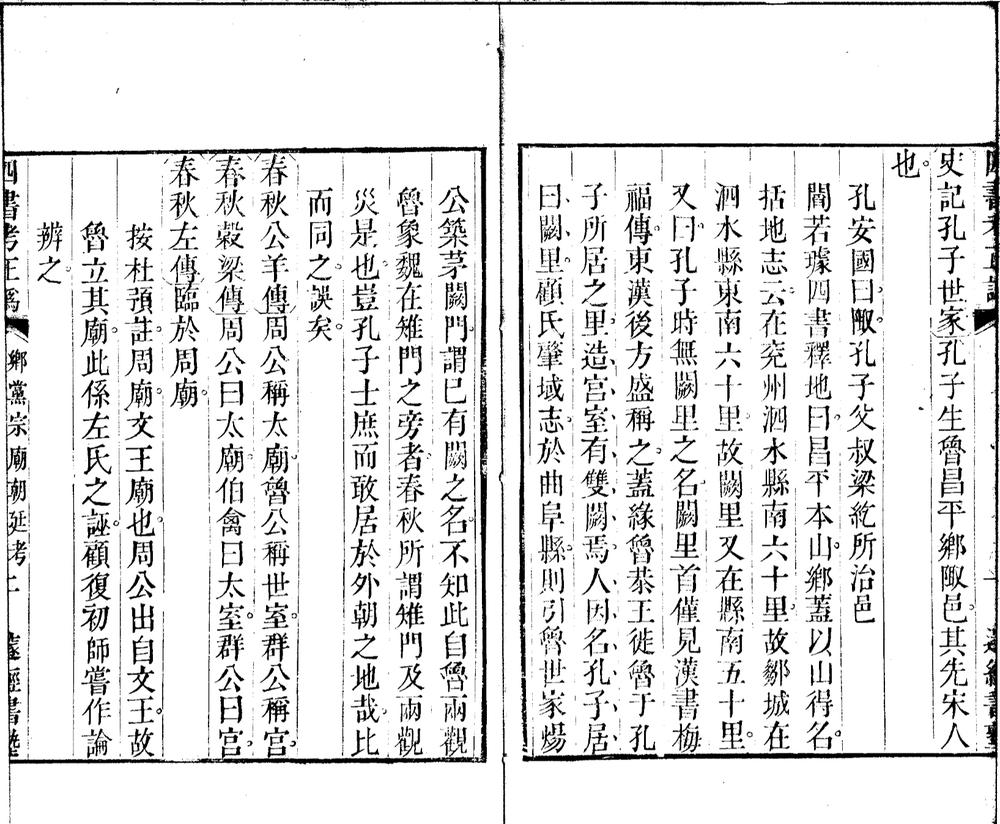 史記孔子世家孔子生魯昌平鄉陬邑其先宋人
也
孔安國曰陬孔子父叔梁紇所治邑
閻若璩四書釋地曰昌平本山鄉蓋以山得名
括地志云在兖州泗水縣南六十里故鄒城在
泗水縣東南六十里故闕里又在縣南五十里
又曰孔子時無闕里之名闕里首僅見漢書梅
福傳東漢後方盛稱之蓋緣魯恭王徙魯于孔
子所居之里造宫室有雙闕焉人因名孔子居
曰闕里顧氏肇域志於曲阜縣則引魯世家煬
公築茅闕門謂已有闕之名不知此自魯兩觀
魯象魏在雉門之旁者春秋所謂雉門及兩觀
災是也豈孔子士庶而敢居於外朝之地哉比
而同之誤矣
春秋公羊傳周公稱太廟魯公稱世室群公稱宫
春秋穀梁傳周公曰太廟伯禽曰太室群公曰宫
春秋左傳臨於周廟
按杜預註周廟文王廟也周公出自文王故
魯立其廟此係左氏之誣顧復初師嘗作論
辨之
四書考正譌
鄉黨宗廟朝廷考二